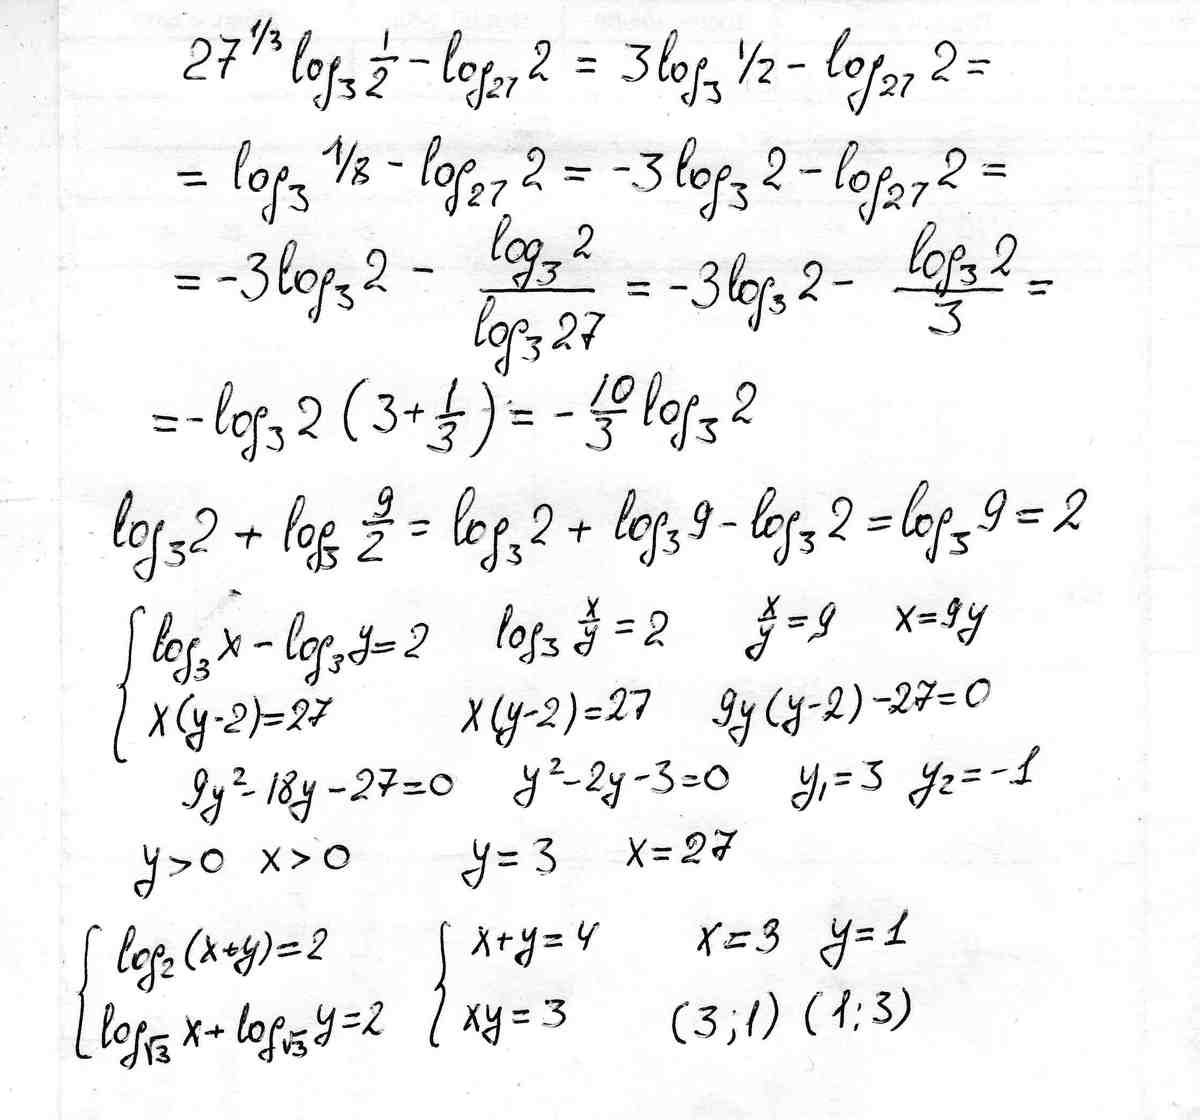 27^{1/3} log₃ 1/2 - log₂₇ 2 = 3 log₃ 1/2 - log₂₇ 2 =
= log₃ 1/8 - log₂₇ 2 = -3 log₃ 2 - log₂₇ 2 =
= -3 log₃ 2 - \frac{log₃ 2}{log₃ 27} = -3 log₃ 2 - \frac{log₃ 2}{3} =
= -log₃ 2 (3 + \frac{1}{3}) = -\frac{10}{3} log₃ 2
log₃ 2 + log₃ \frac{9}{2} = log₃ 2 + log₃ 9 - log₃ 2 = log₃ 9 = 2
{ log₃ x - log₃ y = 2    log₃ \frac{x}{y} = 2    \frac{x}{y} = 9    x = 9y
x(y-2) = 27    x(y-2) = 27    9y(y-2) - 27 = 0
9y² - 18y - 27 = 0    y² - 2y - 3 = 0    y₁ = 3  y₂ = -1
y > 0  x > 0    y = 3    x = 27
{ log₂(x+y) = 2    { x + y = 4    x = 3  y = 1
log_{√3} x + log_{√3} y = 2    xy = 3    (3;1) (1;3)